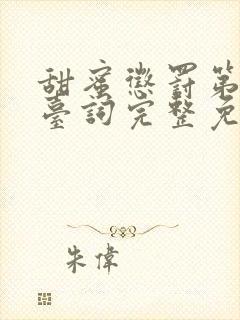 甜蜜懲罰第
臺詞完整免
朱偉